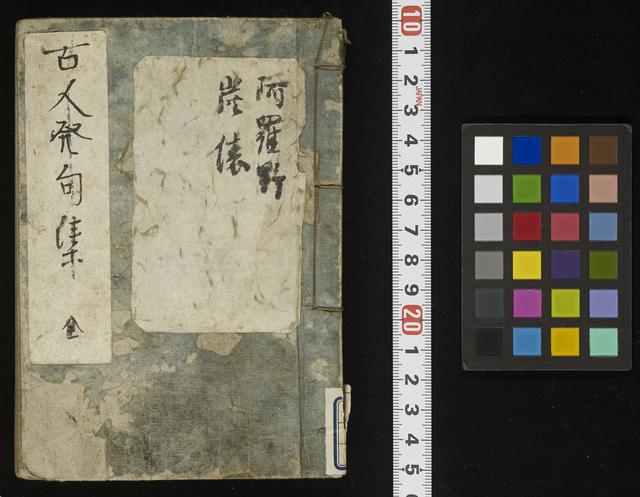 阿羅野
炭俵
古人発句集 全
10
1
2
JAPAN
3
4
5
6
7
8
9
20
1
2
3
4
5